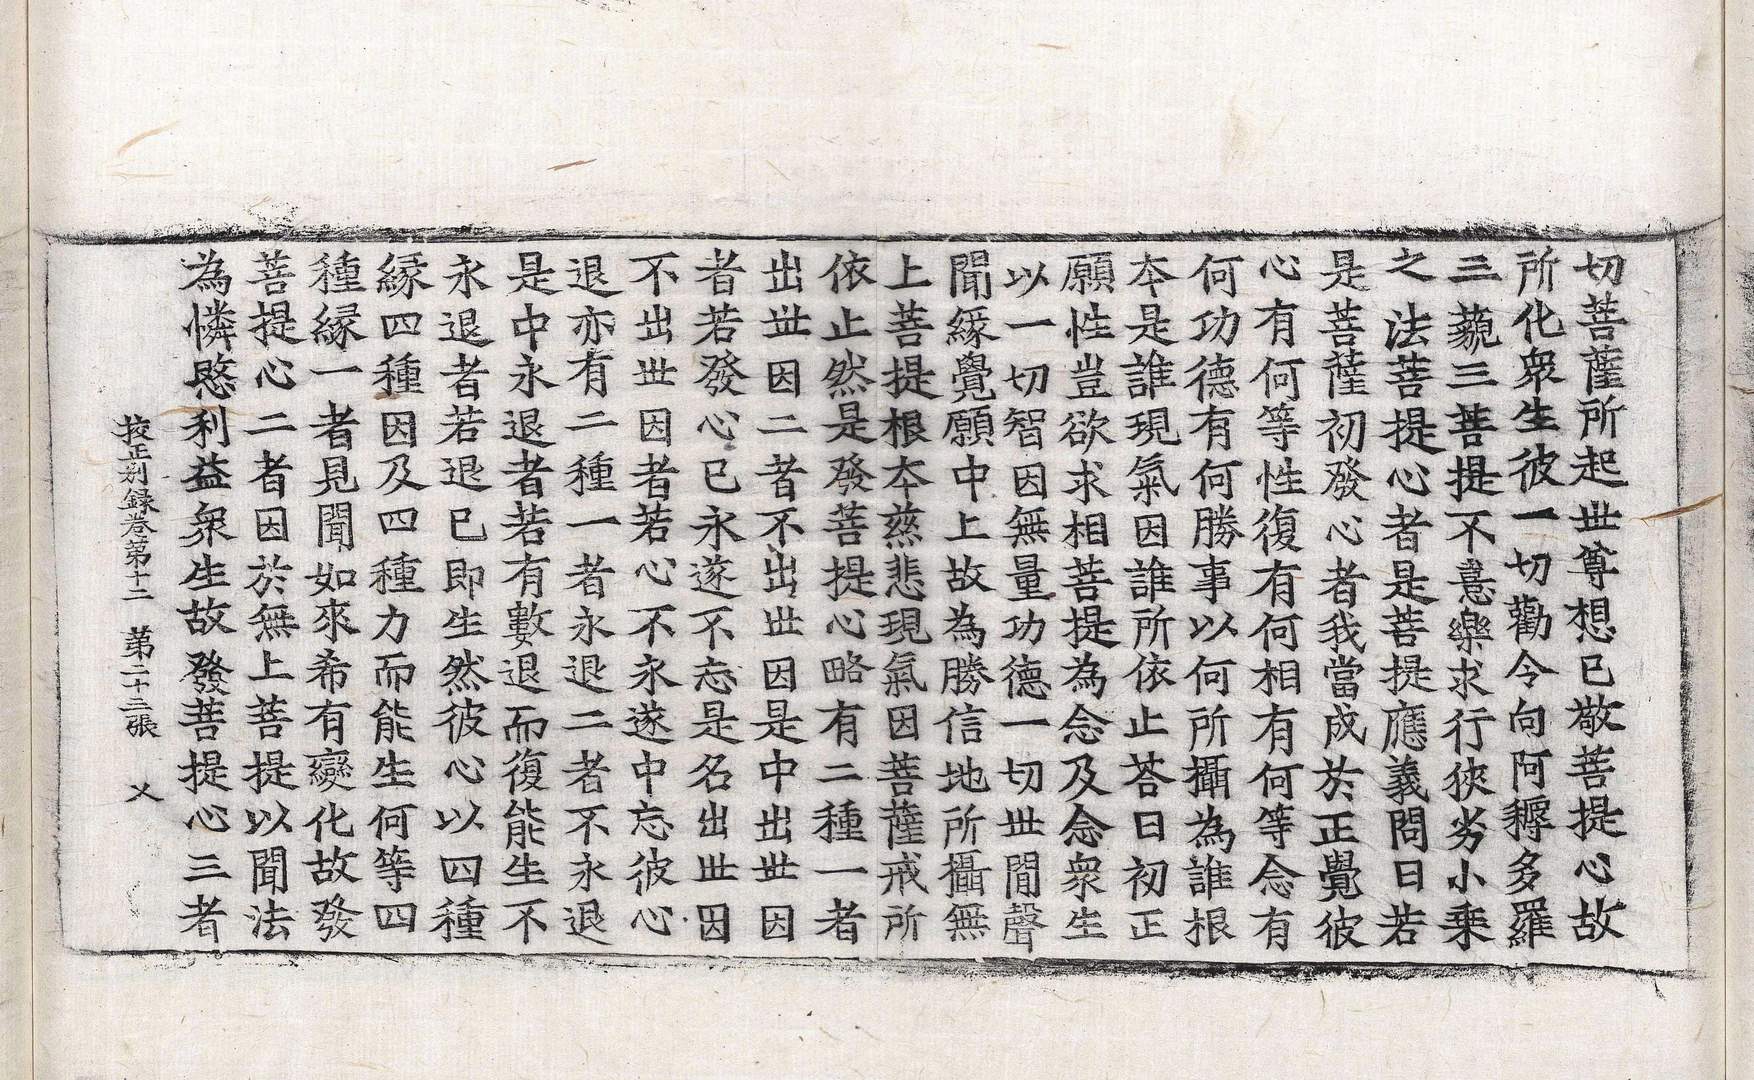 切菩薩所起世尊想已敬菩提心故
所化衆生彼一切勸令向阿耨多羅
三藐三菩提不憙樂求行狹劣小乗
之法菩提心者是菩提應義問曰若
是菩薩初發心者我當成於正覺彼
心有何等性復有何相有何等念有
何功德有何勝事以何所攝為誰根
夲是誰現氣因誰所依止荅曰初正
願性豈欲求相菩提為念及念衆生
以一切智因無量功德一切世閒聲
聞緣覺願中上故為勝信地所攝無
上菩提根夲慈悲現氣因菩薩戒所
依止然是發菩提心略有二種一者
出世因二者不出世因是中出世因
者若發心已永遂不忘是名出世因
不出世因者若心不永遂中忘彼心
退亦有二種一者永退二者不永退
是中永退者若有數退而復能生不
永退者若退已即生然彼心以四種
縁四種因及四種力而能生何等四
種縁一者見聞如來希有變化故發
菩提心二者因於無上菩提以聞法
為憐愍利益衆生故發菩提心三者
挍正别録卷第十二　第二十三張　乂